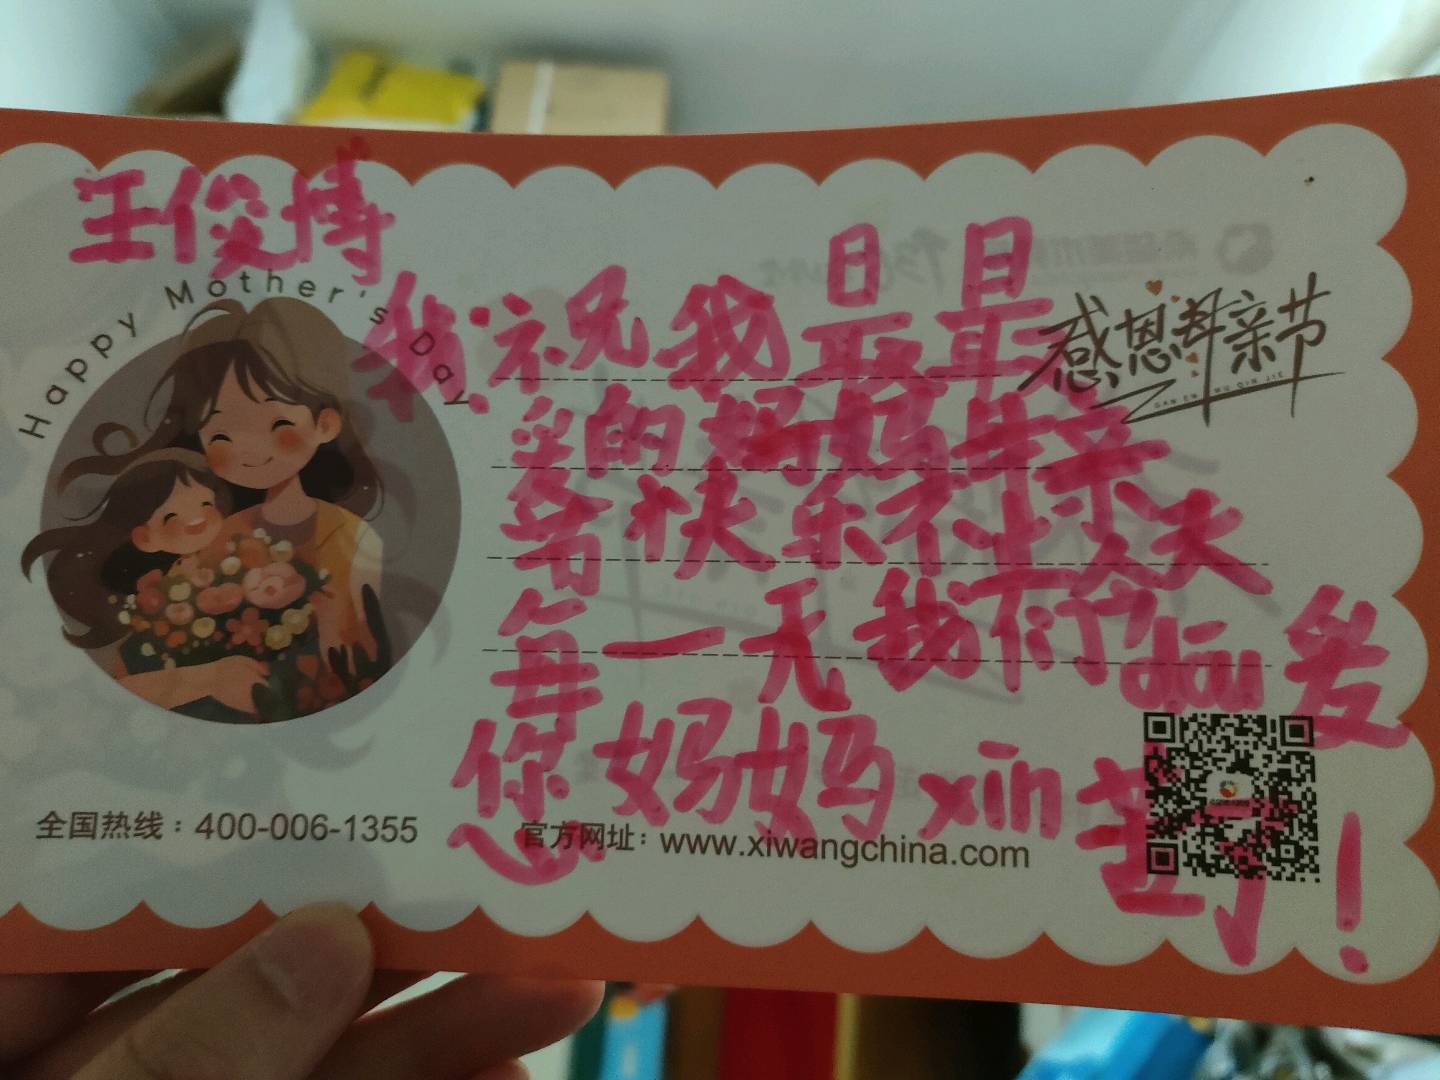 王俊博
Happy Mother's Day
我祝我最最
爱的妈妈母亲
节快乐不止今天
每一天我们dōu爱
您妈妈xīn苦了!
感恩母亲节
GAN EN MU QIN JIE
全国热线：400-006-1355
官方网址：www.xiwangchina.com